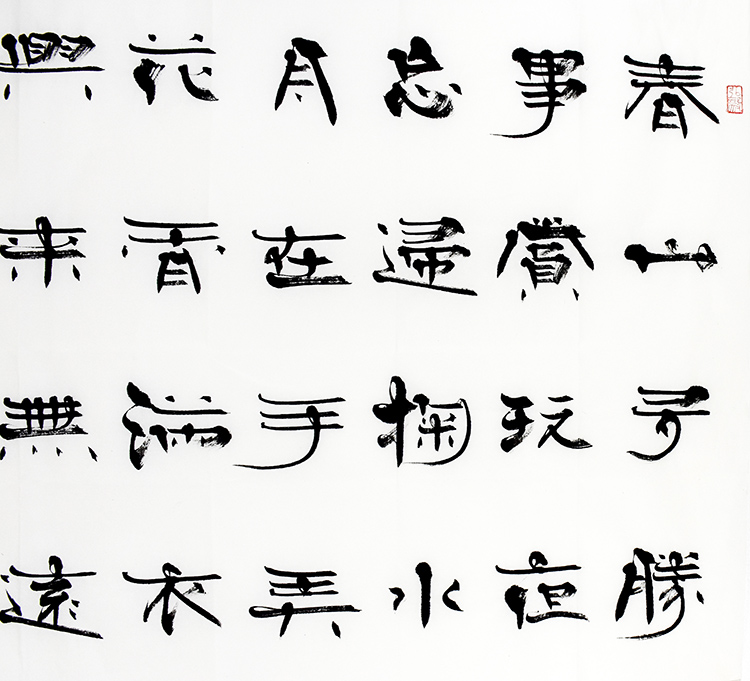 春山多勝
事賞玩夜
忘歸掬水
月在手弄
花香滿衣
興来無遠